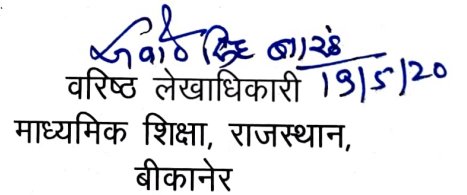 19/5/20
वरिष्ठ लेखाधिकारी
माध्यमिक शिक्षा, राजस्थान,
बीकानेर